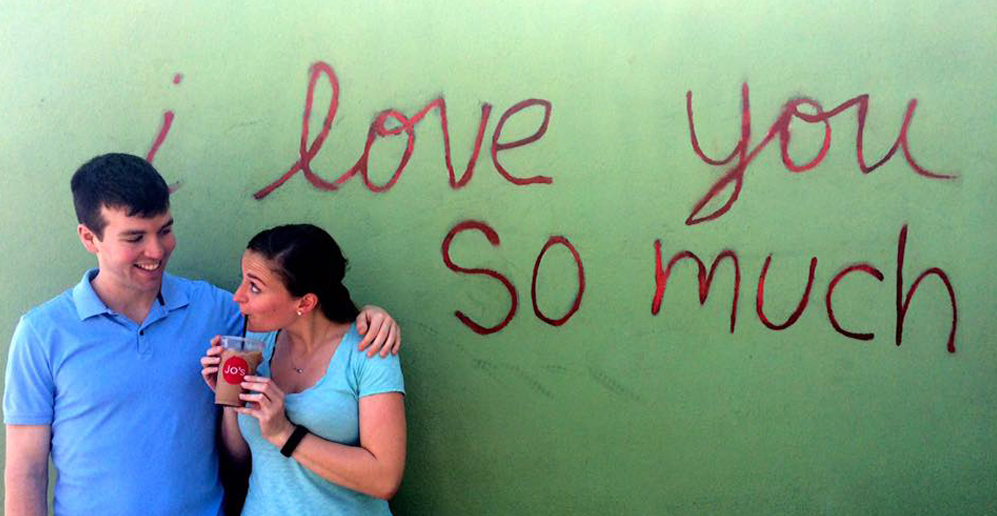 i love you
so much
JO'S